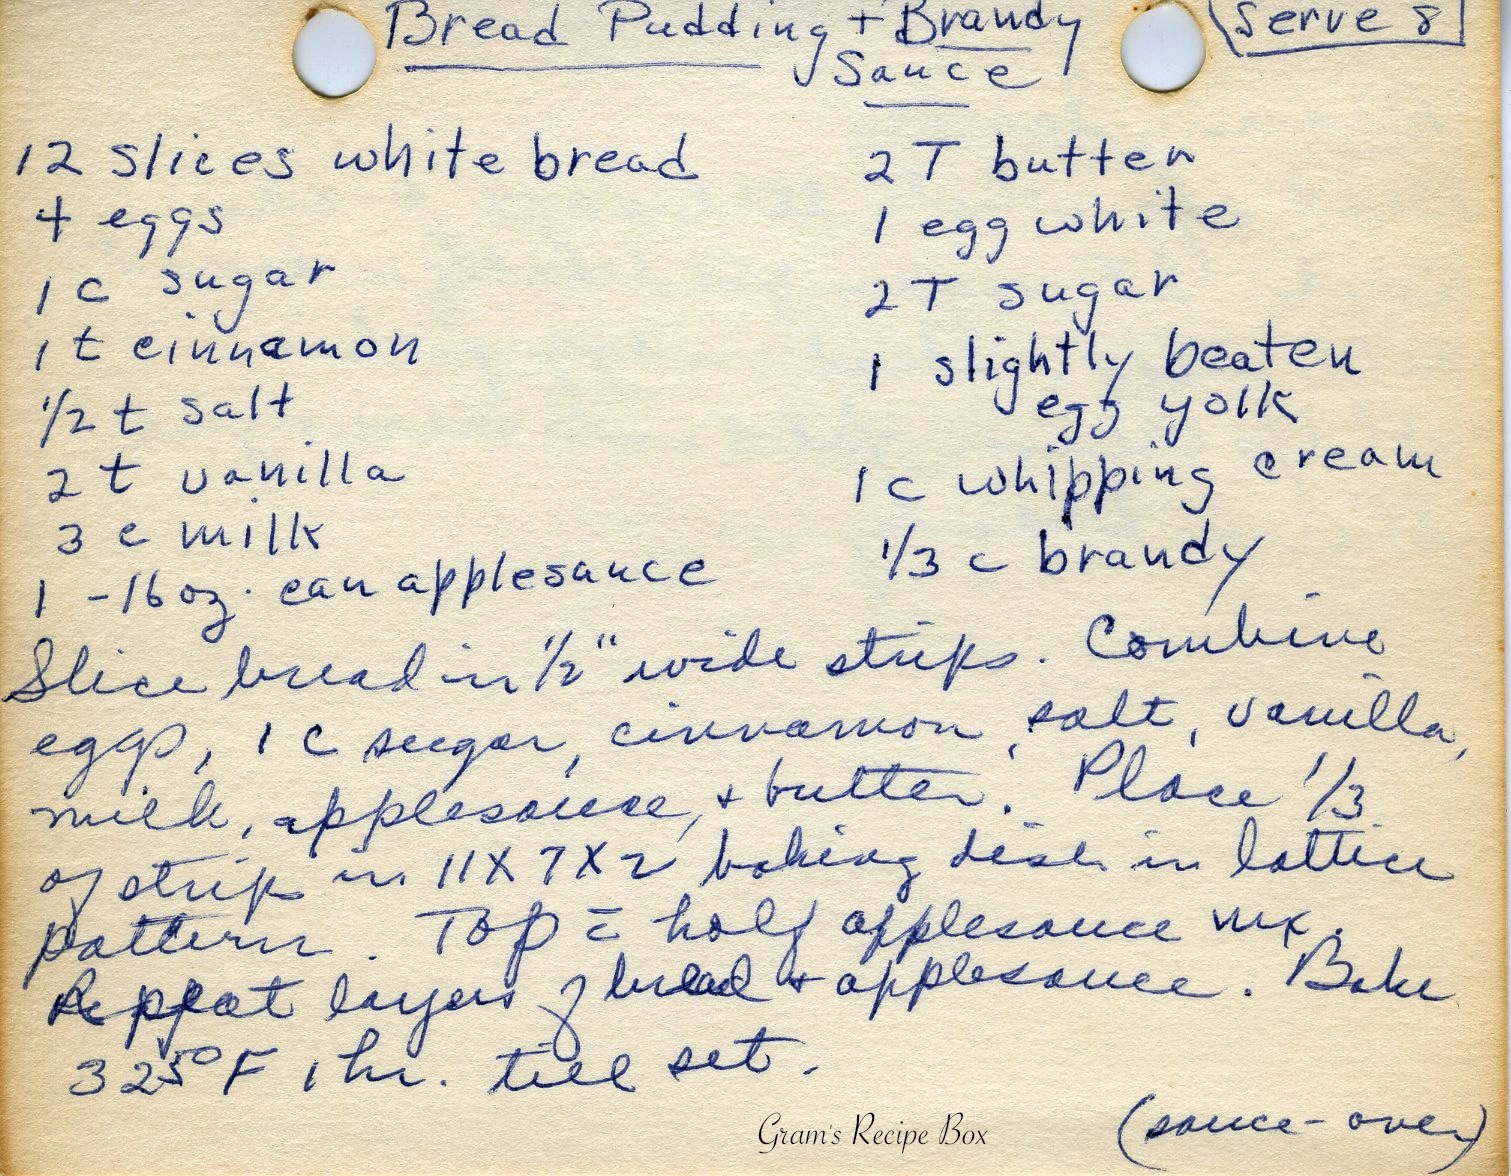 Bread Pudding + Brandy Sauce
Serve 8
12 slices white bread
4 eggs
1 c sugar
1 t cinnamon
1/2 t salt
2 t vanilla
3 c milk
1 - 16 oz. can applesauce
2 T butter
1 egg white
2 T sugar
1 slightly beaten
egg yolk
1 c whipping cream
1/3 c brandy
Slice bread in 1/2" wide strips. Combine
eggs, 1 c sugar, cinnamon, salt, vanilla,
milk, applesauce, + butter. Place 1/3
of strip in 11 X 7 X 2 baking dish in lattice
pattern. Top c̄ half applesauce mix.
Reppeat layers of bread + applesauce. Bake
325°F 1 hr. till set.
(sauce - over)
Gram's Recipe Box